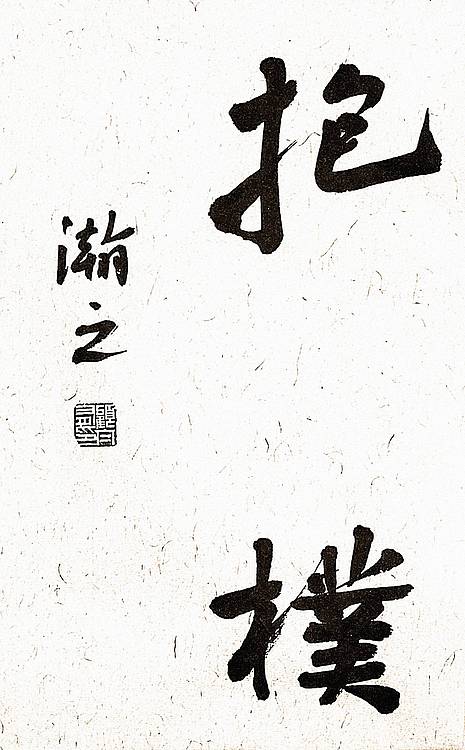 抱樸
瀚之